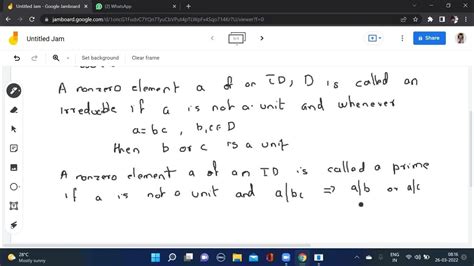 Untitled Jam - Google Jamboard
(2) WhatsApp
jamboard.google.com
Untitled Jam
Share
Set background
Clear frame
A nonzero element a of an ID, D is called an
irreducible if a is not a unit and whenever
a=bc, b,c∈D
then b or c is a unit
A nonzero element a of an ID is called a prime
if a is not a unit and a/bc ⇒ a/b or a/c
28°C
Mostly sunny
ENG
IN
08:16
26-03-2022